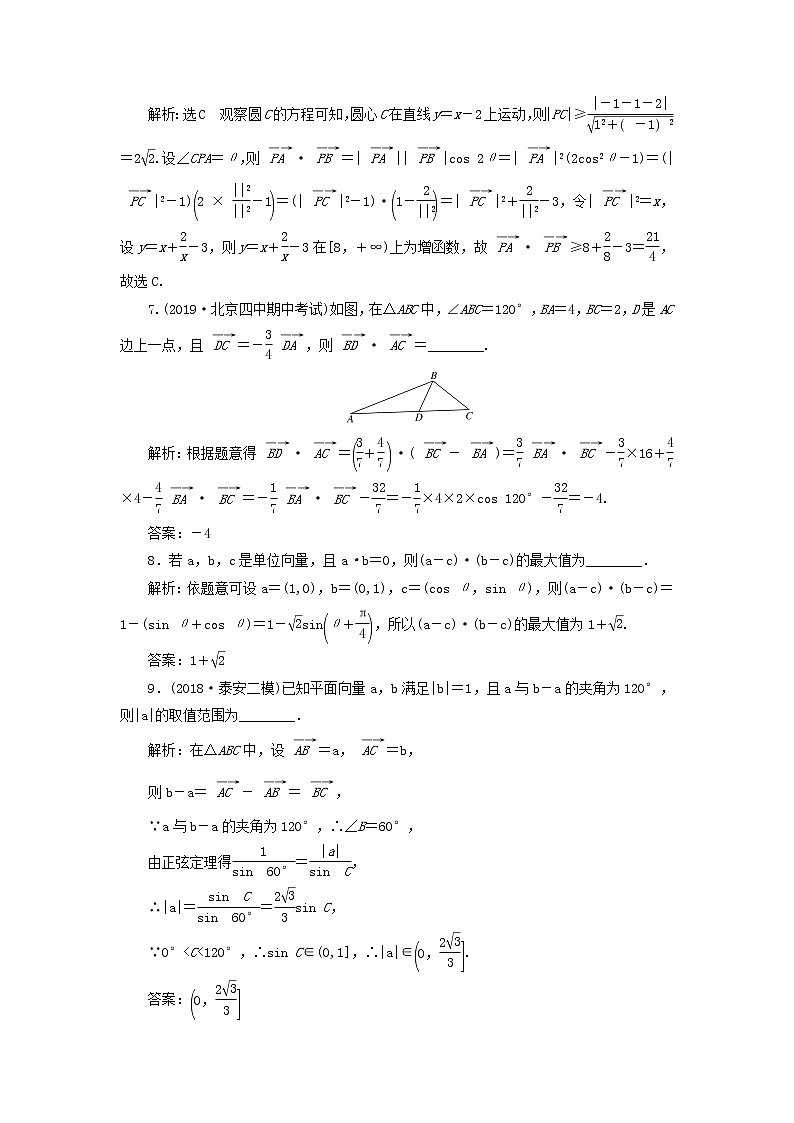 解析:选C 观察圆C的方程可知,圆心C在直线y=x-2上运动,则|PC|≥|-1-1-2|/√(1²+( -1) ²)
=2√2.设∠CPA= θ,则 PA→· PB→=| PA→|| PB→|cos 2θ=| PA→|²(2cos²θ-1)=(|
PC→|²-1)(2 × ||²/||²-1)=(| PC→|²-1)·(1-2/||²)=| PC→|²+2/||²-3,令| PC→|²=x,
设y=x+2/x-3,则y=x+2/x-3在[8,+∞)上为增函数,故 PA→· PB→≥8+2/8-3=21/4,
故选C.
7.(2019·北京四中期中考试)如图,在△ABC中,∠ABC=120°,BA=4,BC=2,D是AC
边上一点,且 DC→=-3/4 DA→,则 BD→· AC→=________.
B
A D C
解析:根据题意得 BD→· AC→=(3/7+4/7)·( BC→- BA→)=3/7 BA→· BC→-3/7×16+4/7
×4-4/7 BA→· BC→=-1/7 BA→· BC→-32/7=-1/7×4×2×cos 120°-32/7=-4.
答案:-4
8.若a,b,c是单位向量,且a·b=0,则(a-c)·(b-c)的最大值为________.
解析:依题意可设a=(1,0),b=(0,1),c=(cos θ,sin θ),则(a-c)·(b-c)=
1-(sin θ+cos θ)=1-√2sin(θ+π/4),所以(a-c)·(b-c)的最大值为1+√2.
答案:1+√2
9.(2018·泰安二模)已知平面向量a,b满足|b|=1,且a与b-a的夹角为120°,
则|a|的取值范围为________.
解析:在△ABC中,设 AB→=a, AC→=b,
则b-a= AC→- AB→= BC→,
∵a与b-a的夹角为120°,∴∠B=60°,
由正弦定理得1/sin 60°=|a|/sin C,
∴|a|=sin C/sin 60°=2√3/3 sin C,
∵0°<C<120°,∴sin C∈(0,1],∴|a|∈(0,2√3/3].
答案:(0,2√3/3]